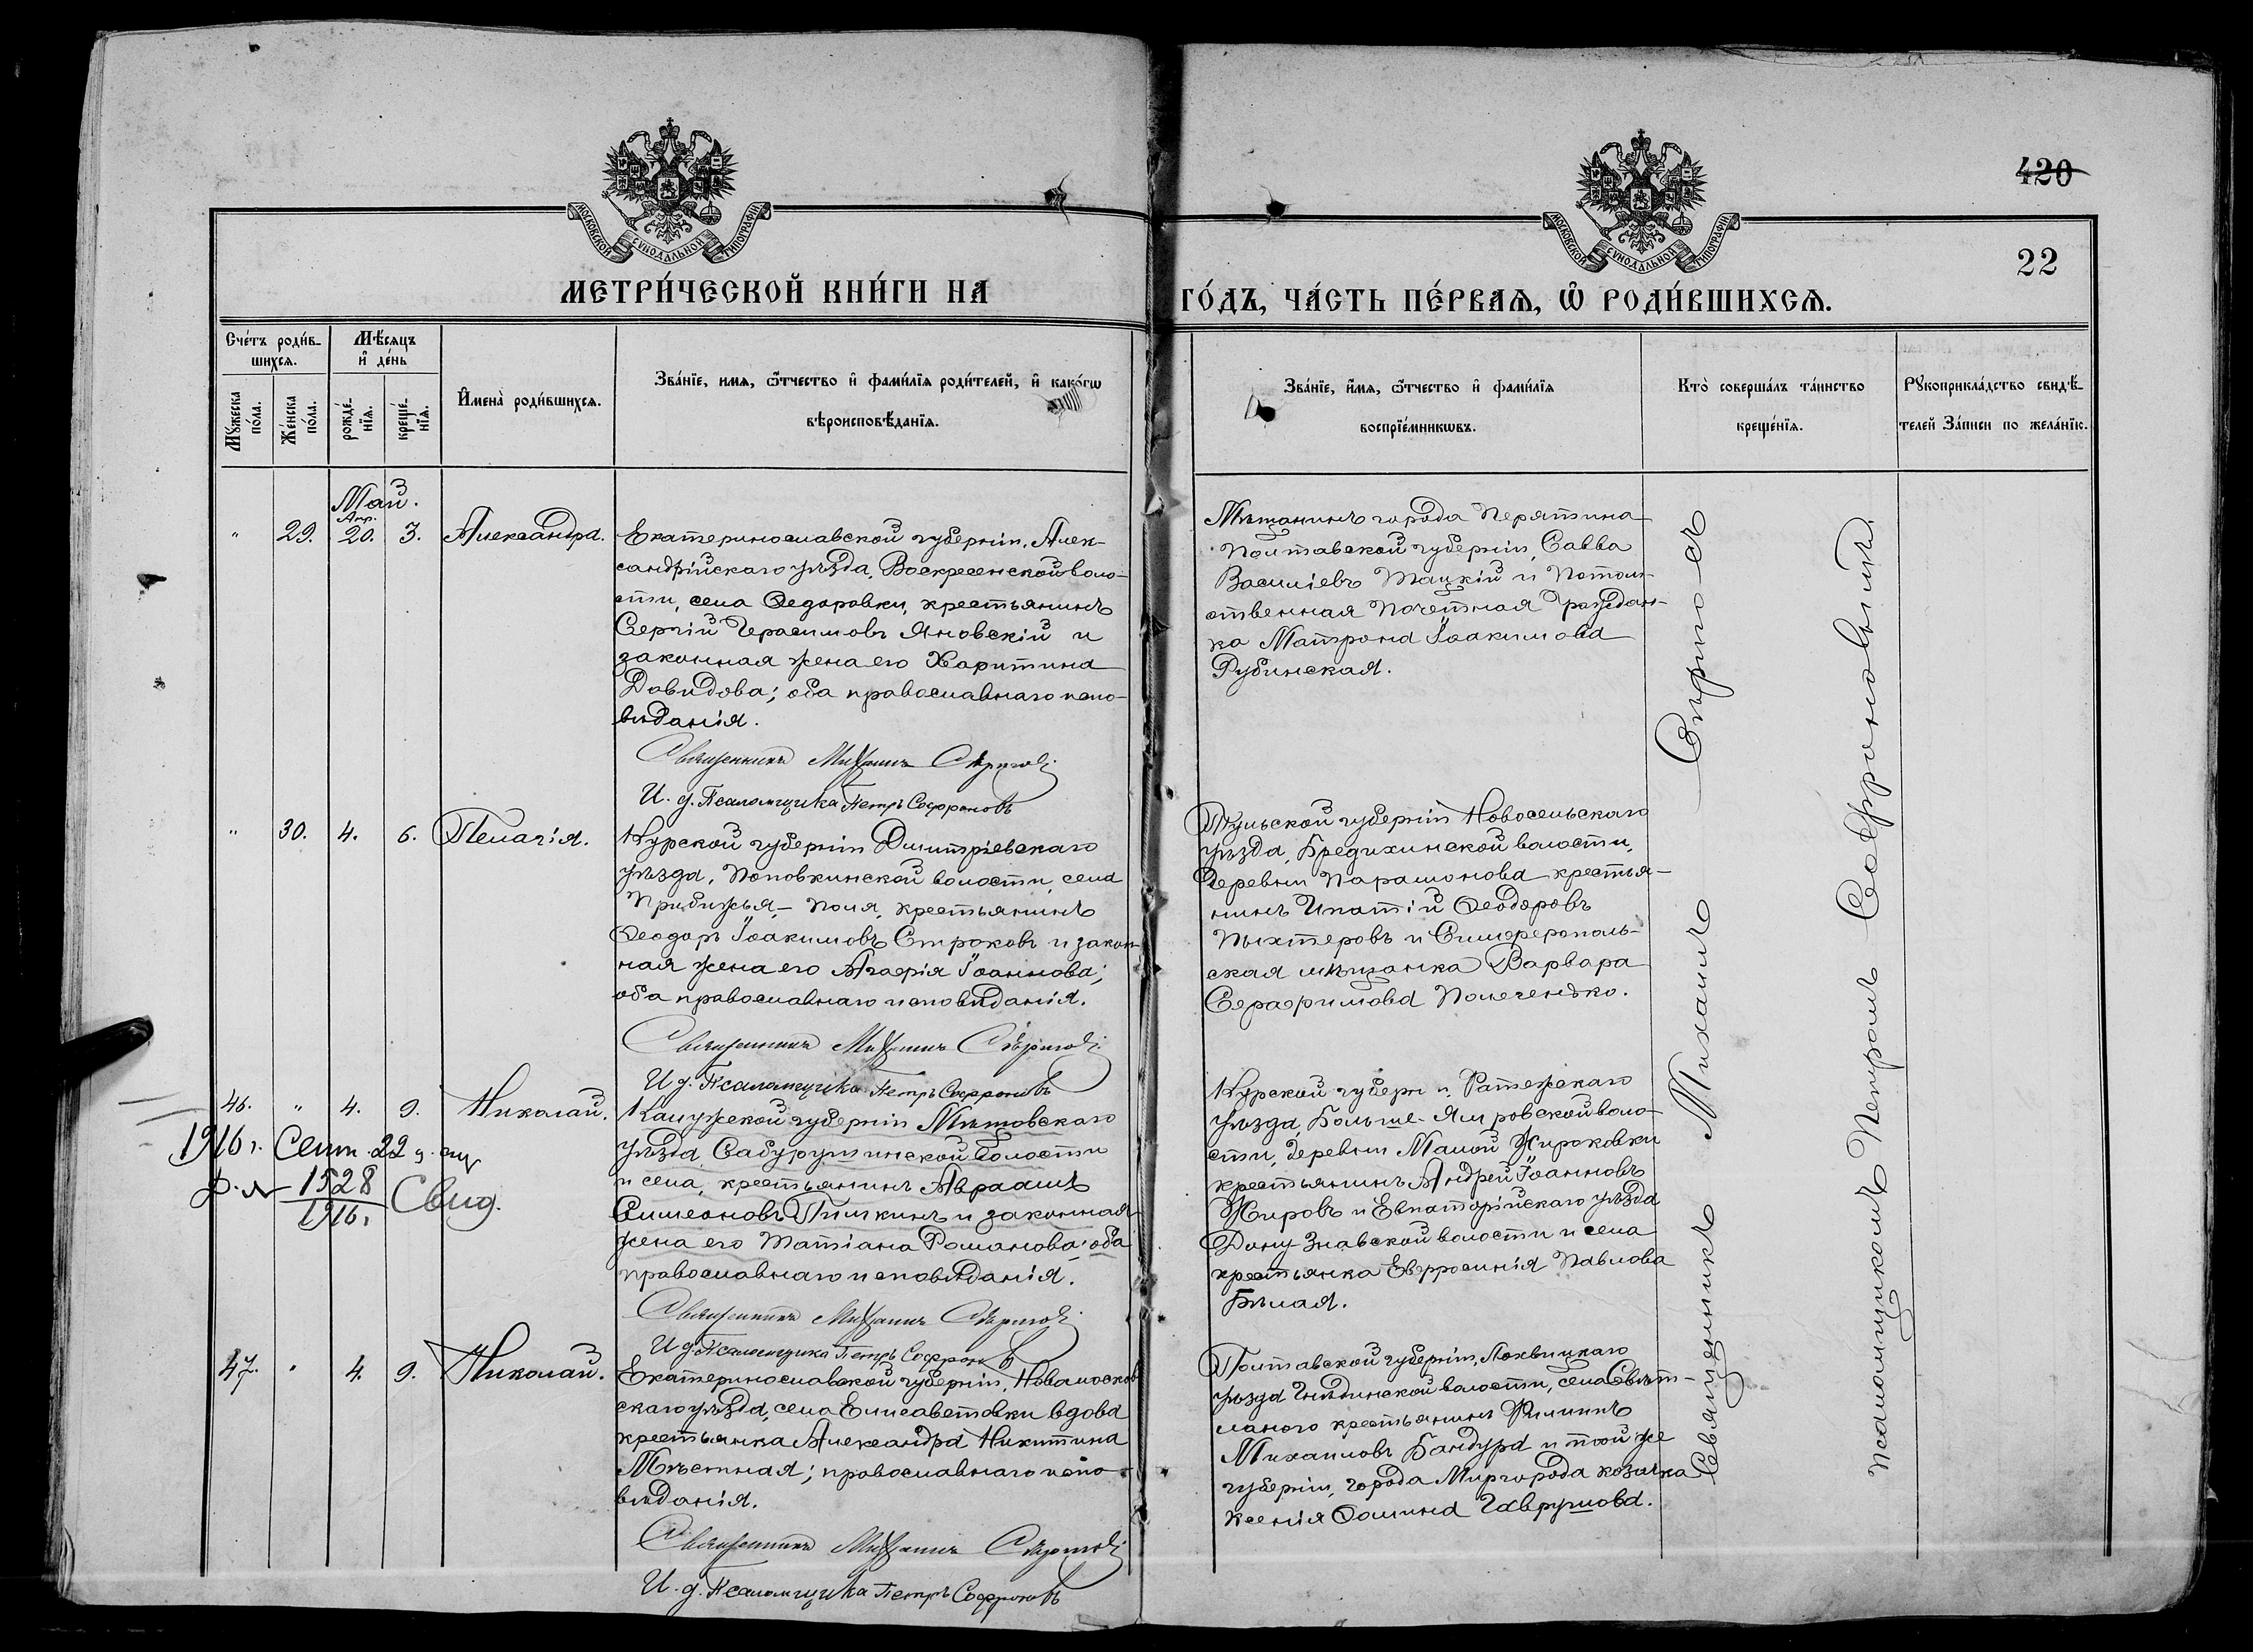 420
МОСКОВСКОЙ СѴНОДАЛЬНОЙ ТИПОГРАФІИ
МОСКОВСКОЙ СѴНОДАЛЬНОЙ ТИПОГРАФІИ
22
МЕТРИ́ЧЕСКОЙ КНИ́ГИ НА
ГО́ДЪ, ЧА́СТЬ ПЕ́РВАѦ, Ѽ РОДИ́ВШИХСѦ.
Сче́тъ роди́в-
шихсѧ.
Мꙋ́жеска по́ла.
Же́нска по́ла.
Мѣ́сѧцъ
и҆ де́нь
рожде́-нїѧ.
креще́-нїѧ.
И҆мена̀ роди́вшихсѧ.
Зва́нїе, имѧ, ѻ҆́тчество и҆ фами́лїѧ роди́телей, и҆ како́гѡ
вѣроисповѣ́данїѧ.
Зва́нїе, и҆́мѧ, ѻ҆́тчество и҆ фами́лїѧ
воспрїе́мникѡвъ.
Кто̀ соверша́лъ та́инство
креще́нїѧ.
Рꙋкоприкла́дство свидѣ́-
телей За́писи по жела́нїю.
Май.
Апр.
" 29. 20. 3. Александра.
Екатеринославской губерніи, Алек-
сандрійскаго уѣзда, Воскресенской воло-
сти, села Ѳедоровки, крестьянинъ
Сергій Герасимовъ Яновскій и
законная жена его Харитина
Давидова; оба православнаго испо-
вѣданія.
Священникъ Михаилъ
И. д. Псаломщика Петръ Софроновъ
Мѣщанинъ города Пирятина
Полтавской губерніи, Савва
Василіевъ Тацкій и Потом-
ственная Почетная Граждан-
ка Матрона Іоакимова
Рубинская.
" 30. 4. 6. Пелагія.
Курской губерніи Димитріевскаго
уѣзда, Поповкинской волости, села
Прибужья,- Поля, крестьянинъ
Ѳеодоръ Іоакимовъ Строковъ и закон-
ная жена его Агафія Іоаннова;
оба православнаго исповѣданія.
Священникъ Михаилъ
И д. Псаломщика Петръ Софроновъ
Тульской губерніи Новосельскаго
уѣзда, Бредихинской волости,
деревни Парамонова крестья-
нинъ Ипатій Ѳеодоровъ
Пыхтеровъ и Симферополь-
ская мѣщанка Варвара
Серафимова Полеченько.
46. " 4. 9. Николай.
1916 г. Сент. 22 д.
1528
1916 г. Свид.
Калужской губерніи
уѣзда, волости
и села, крестьянинъ Авраамъ
Симеоновъ и законная
жена его Татіана Романова; оба
православнаго исповѣданія.
Священникъ Михаилъ
И д. Псаломщика Петръ Софроновъ
Курской губерн
уѣзда, Больше- воло-
сти, деревни Малой Жировки
крестьянинъ Андрей Іоанновъ
Жировъ и Евпаторійскаго уѣзда
Дону Знавской волости и села
крестьянка Евфросинія Павлова
Бѣлая.
47. " 4. 9. Николай.
Екатеринославской губерніи, Новомосков-
скаго уѣзда, села Елисаветовки вдова
крестьянка Александра Никитина
Мѣстная; православнаго испо-
вѣданія.
Священникъ Михаилъ
И. д. Псаломщика Петръ Софроновъ
Полтавской губерніи, Лохвицкаго
уѣзда Гнѣдинской волости, села
крестьянинъ Филиппъ
Михаиловъ Бандура и той же
губерніи, города Миргорода козачка
Ксенія Ѳомина Гаврушова.
Священникъ Михаилъ
Псаломщикомъ Петромъ Софроновымъ.